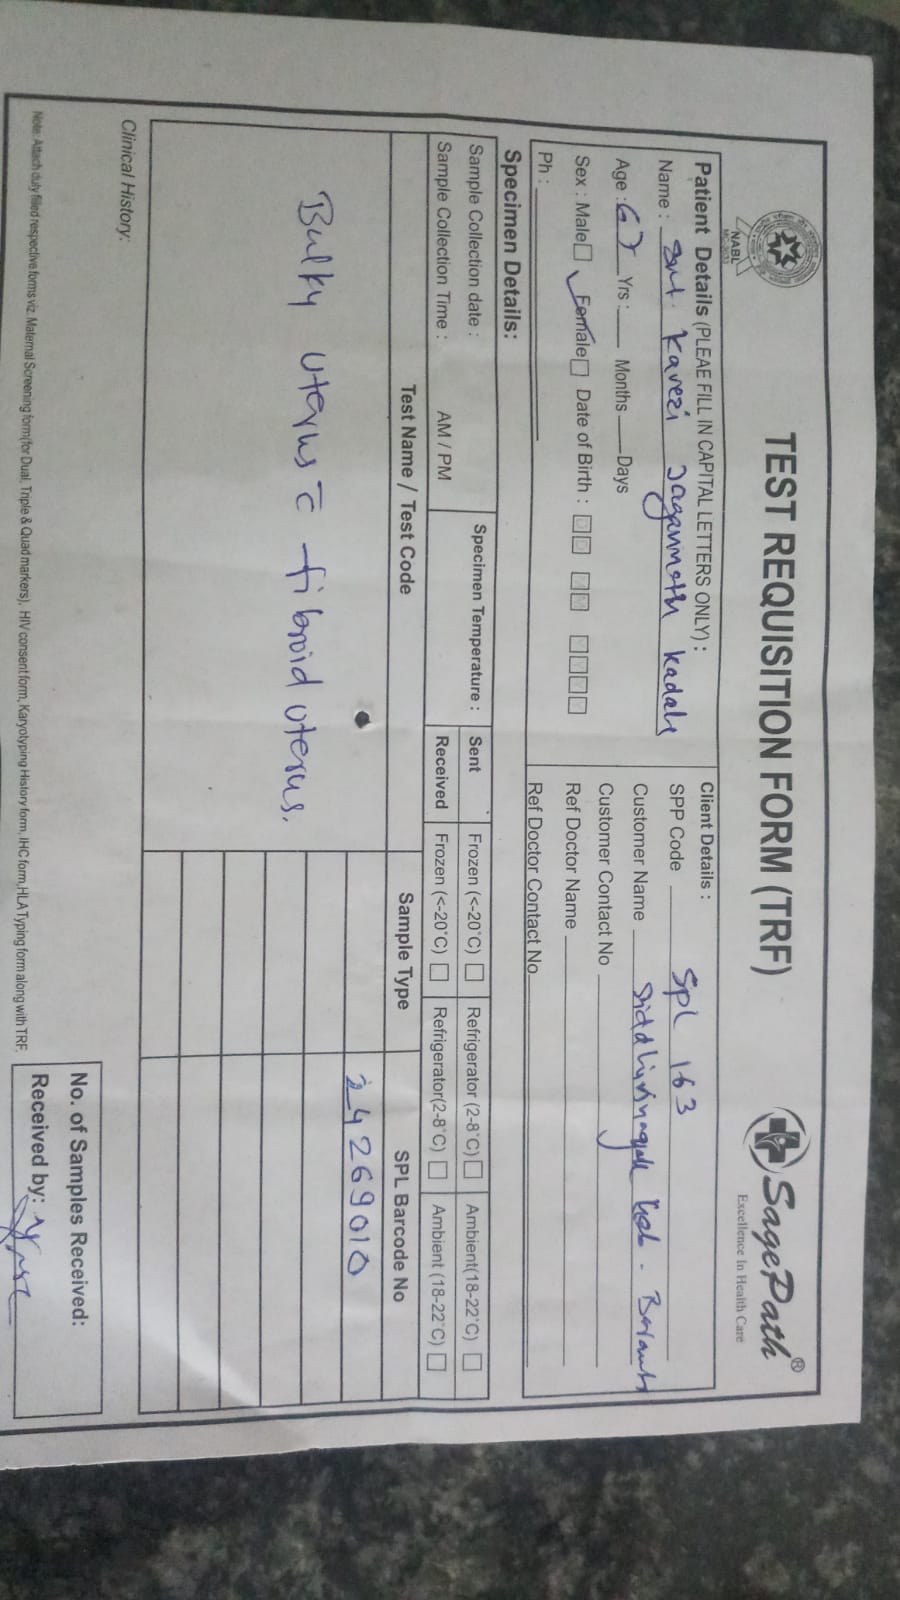 NABL
TEST REQUISITION FORM (TRF)
SagePath®
Excellence In Health Care
Patient Details (PLEAE FILL IN CAPITAL LETTERS ONLY) :
Name : Smt. Kaveri Jagannath Kadale
Age : 67 Yrs : Months Days
Sex : Male Female Date of Birth : DD MM YYYY
Ph :
Client Details :
SPP Code SPL 163
Customer Name Siddhivinayak Lab -
Customer Contact No
Ref Doctor Name
Ref Doctor Contact No
Specimen Details:
Sample Collection date :
Sample Collection Time : AM / PM
Specimen Temperature :
Sent Frozen (<-20°C) Refrigerator (2-8°C) Ambient(18-22°C)
Received Frozen (<-20°C) Refrigerator(2-8°C) Ambient (18-22°C)
Test Name / Test Code Sample Type SPL Barcode No
24269010
Bulky uterus c̄ fibroid uterus.
Clinical History:
No. of Samples Received:
Received by:
Note: Attach duly filled respective forms viz. Maternal Screening form(for Dual, Triple & Quad markers), HIV consent form, Karyotyping History form, IHC form, HLA Typing form along with TRF.